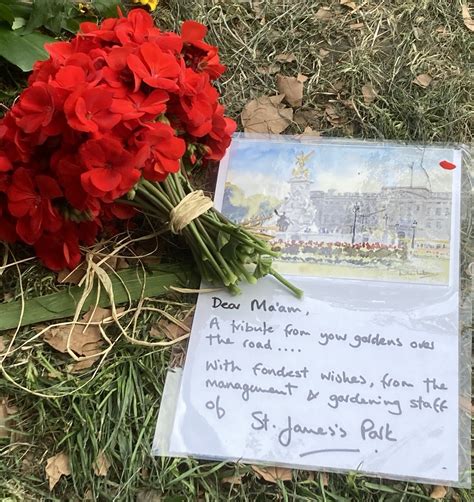 Dear Ma'am,
A tribute from your gardens over
the road ....
With fondest wishes, from the
management & gardening staff
of St. James's Park